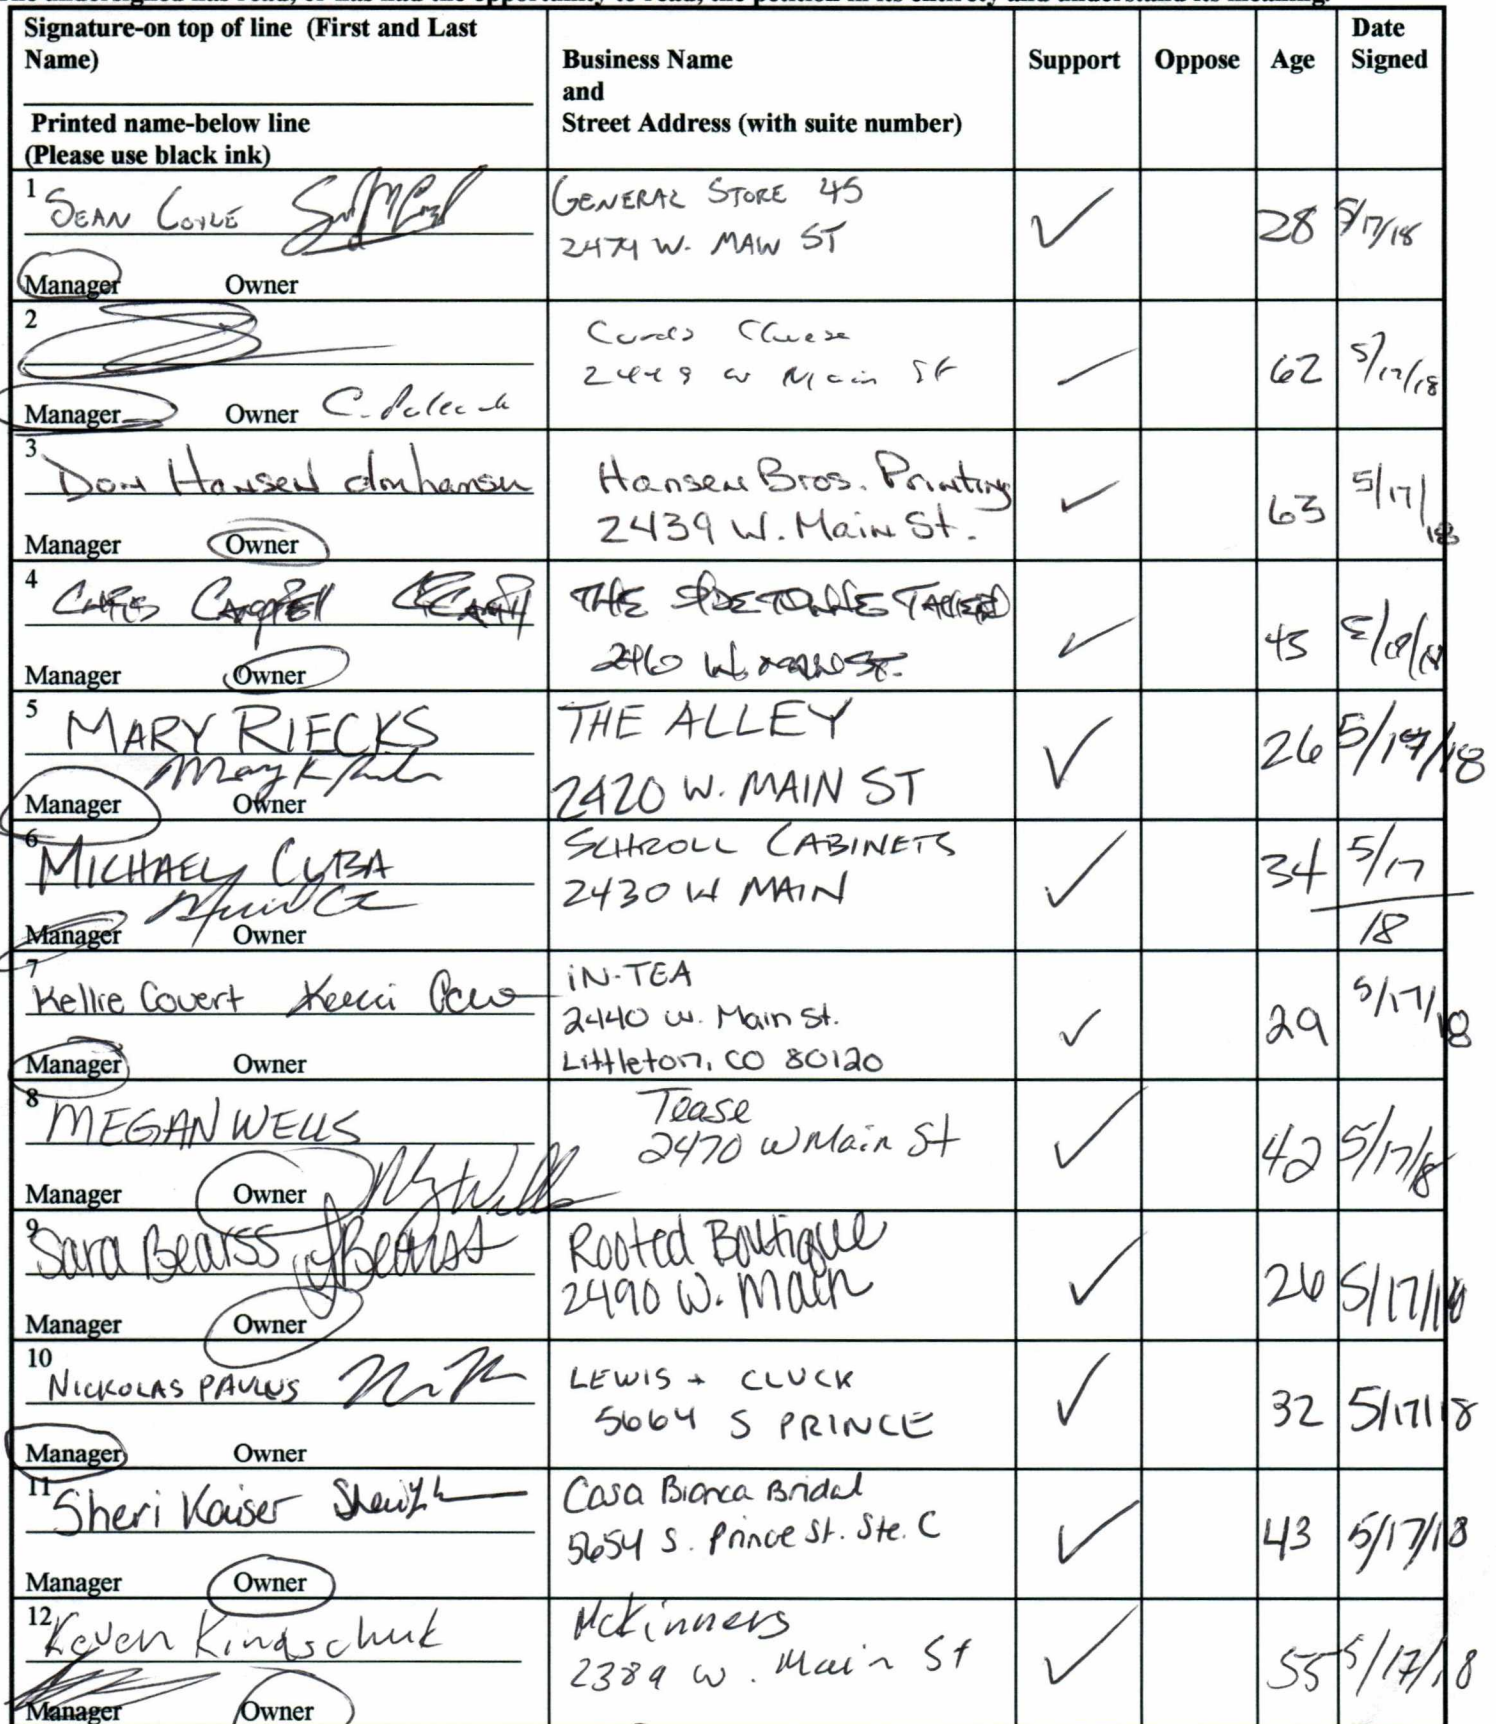 Signature-on top of line (First and Last
Name)
Printed name-below line
(Please use black ink)
Business Name
and
Street Address (with suite number)
Support
Oppose
Age
Date
Signed
1
SEAN COYLE
Manager Owner
GENERAL STORE 45
2479 W. MAIN ST
28
5/17/18
2
Manager Owner C.
2449 W Main St
62
5/17/18
3
Don Hansen
Manager Owner
Hansen Bros. Printing
2439 W. Main St.
63
5/17/
18
4
CHRIS
Manager Owner
THE
W. MAIN ST.
43
5
MARY RIECKS
Manager Owner
THE ALLEY
2420 W. MAIN ST
26
5/17/18
6
MICHAEL CUBA
Manager Owner
SCHROLL CABINETS
2430 W MAIN
34
5/17
18
7
Kellie Covert
Manager Owner
iN-TEA
2440 W. Main St.
Littleton, CO 80120
29
5/17/18
8
MEGAN WELLS
Manager Owner
Tease
2470 W Main St
42
5/17/18
9
Sara Bearss
Manager Owner
Rooted Boutique
2490 W. Main
26
5/17/18
10
NICKOLAS PAULUS
Manager Owner
LEWIS + CLUCK
5664 S PRINCE
32
5/17/18
11
Sheri Kaiser
Manager Owner
Casa Bianca Bridal
5654 S. Prince St. Ste. C
43
5/17/18
12
Keven Kindschuk
Manager Owner
McKinners
2389 W. Main St
55
5/17/18